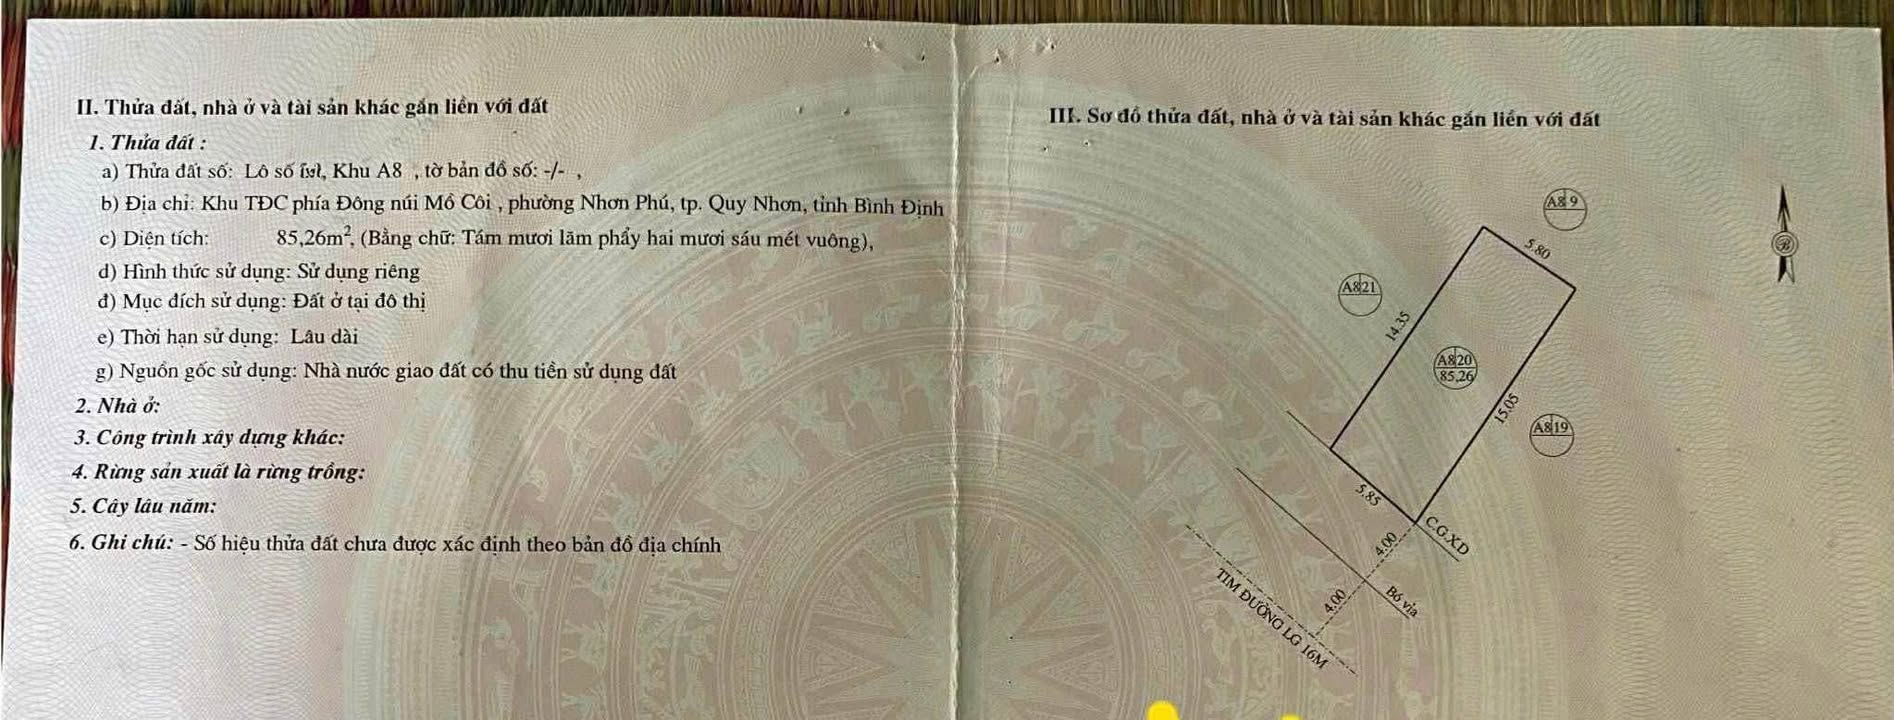 II. Thửa đất, nhà ở và tài sản khác gắn liền với đất
1. Thửa đất :
a) Thửa đất số: Lô số , Khu A8 , tờ bản đồ số: -/- ,
b) Địa chỉ: Khu TĐC phía Đông núi Mồ Côi , phường Nhơn Phú, tp. Quy Nhơn, tỉnh Bình Định
c) Diện tích: 85,26m², (Bằng chữ: Tám mươi lăm phẩy hai mươi sáu mét vuông),
d) Hình thức sử dụng: Sử dụng riêng
đ) Mục đích sử dụng: Đất ở tại đô thị
e) Thời hạn sử dụng: Lâu dài
g) Nguồn gốc sử dụng: Nhà nước giao đất có thu tiền sử dụng đất
2. Nhà ở:
3. Công trình xây dựng khác:
4. Rừng sản xuất là rừng trồng:
5. Cây lâu năm:
6. Ghi chú: - Số hiệu thửa đất chưa được xác định theo bản đồ địa chính
III. Sơ đồ thửa đất, nhà ở và tài sản khác gắn liền với đất
A8 9
5.80
B
A821
14.35
A820
85,26
15.05
A819
5.85
C.G.X.D
4.00
Bó vỉa
4.00
TIM ĐƯỜNG LG 16M